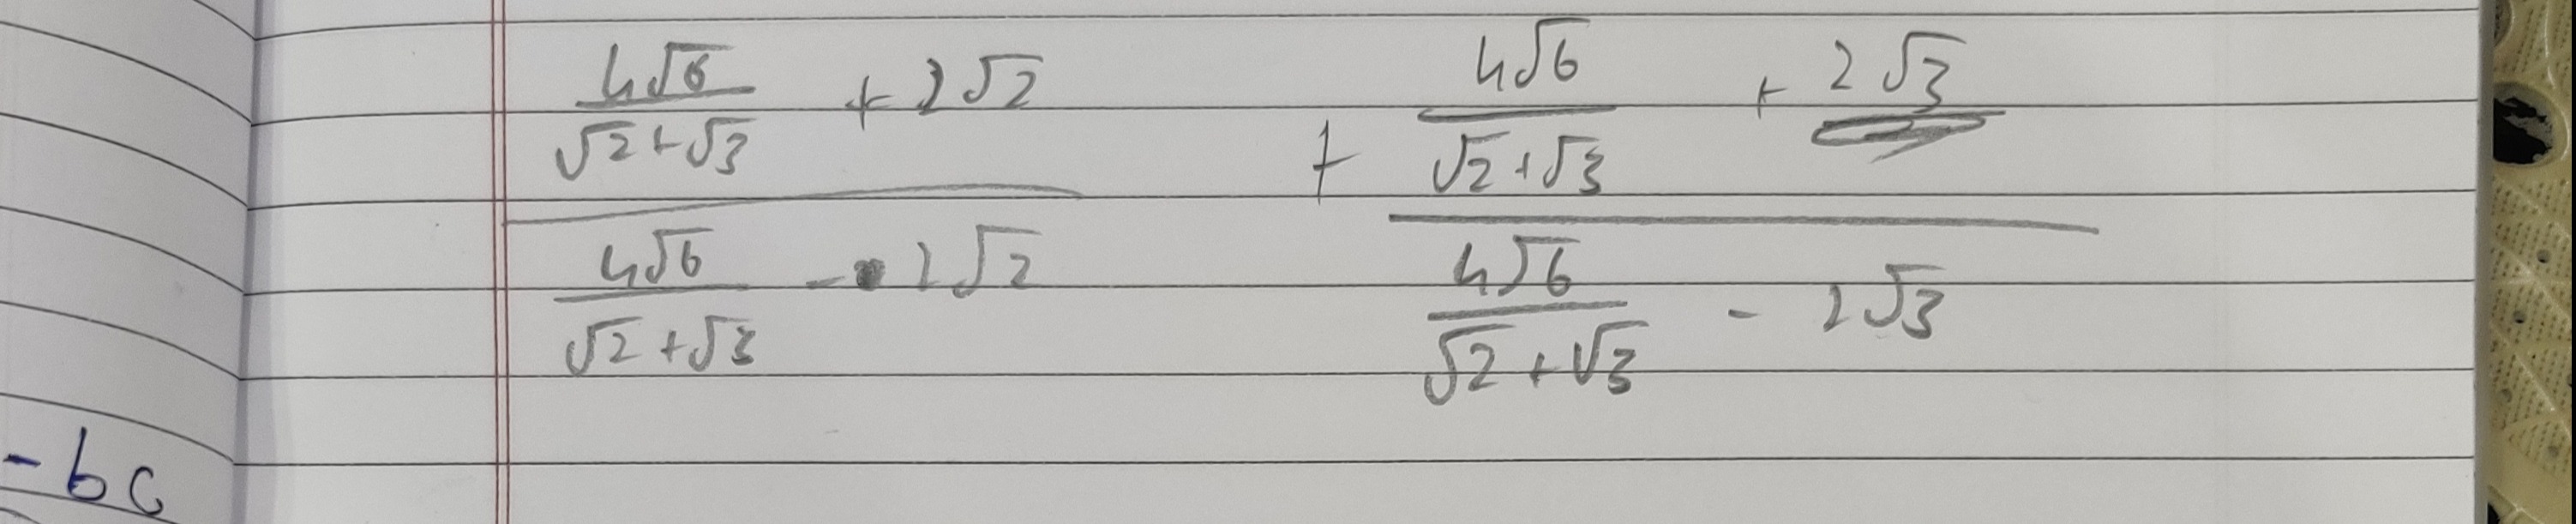 4√6 / (√2+√3) + 2√2
4√6 / (√2+√3) - 2√2
+ 4√6 / (√2+√3) + 2√3
4√6 / (√2+√3) - 2√3
-bc